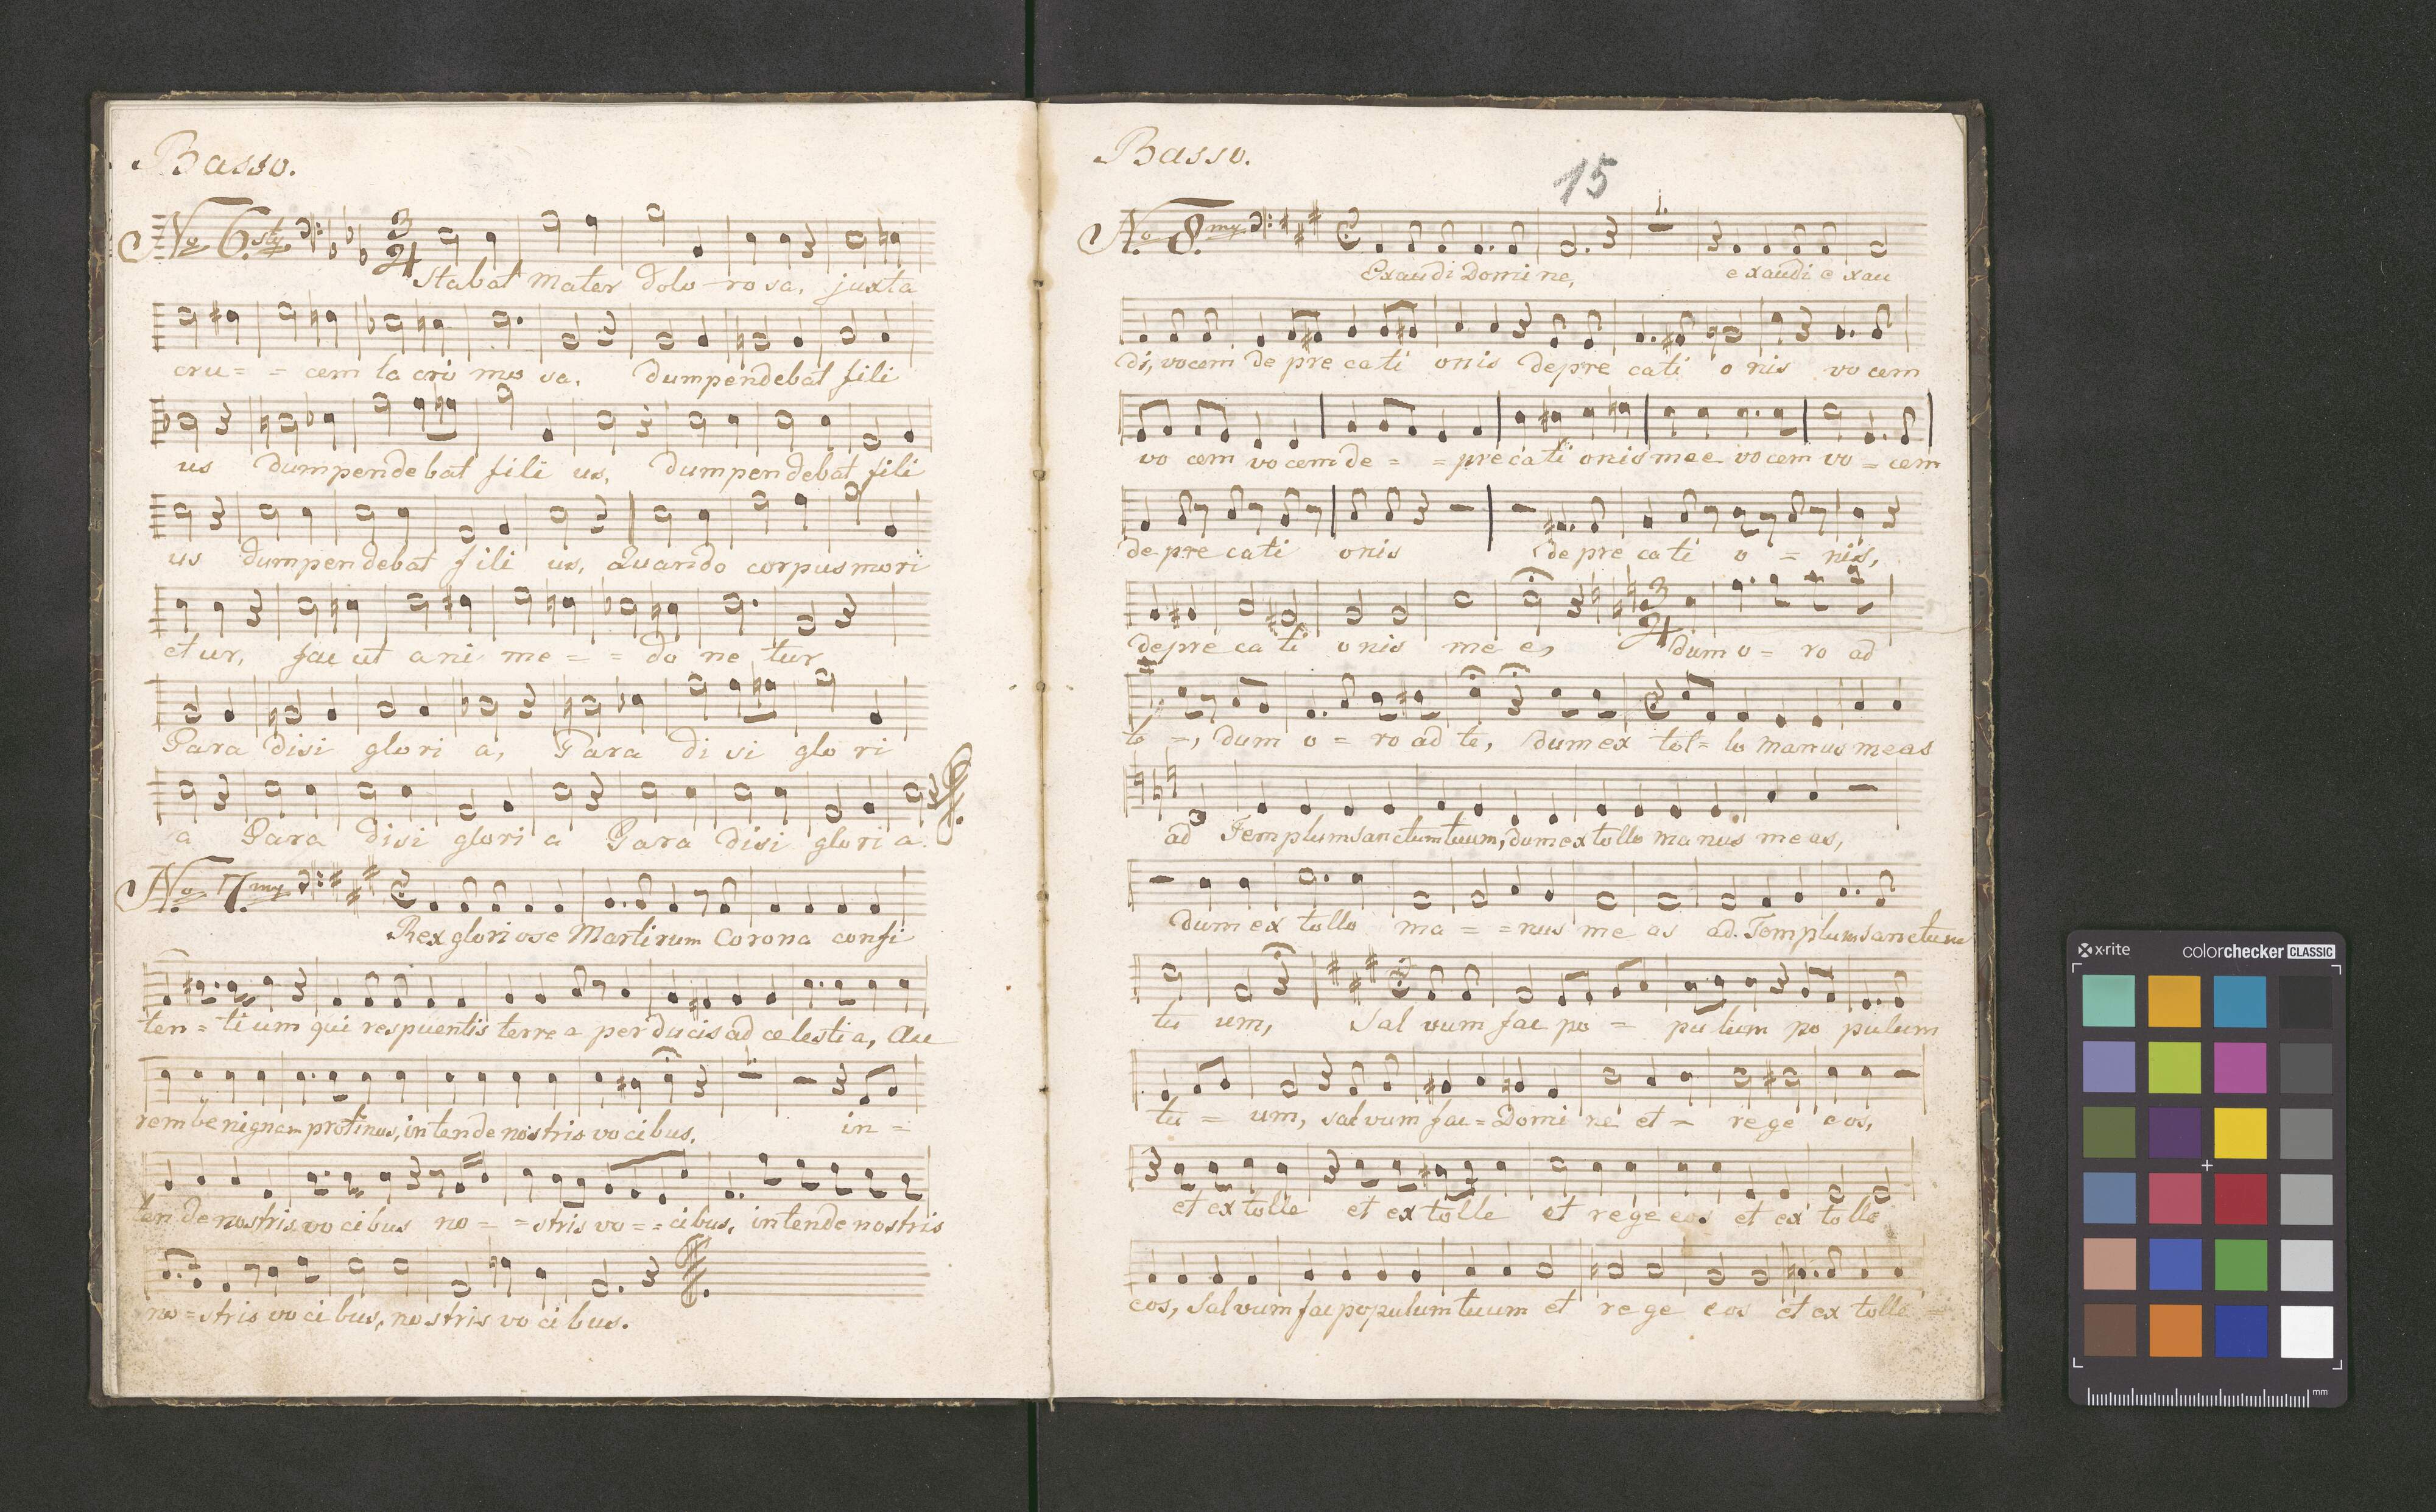 Basso.
No 6sty 3 4
Stabat Mater Dolo - ro sa, juxta
cru = = cem la cri mo sa, dum pendebat fili
us dum pendebat fili us, dum pendebat fili
us dum pendebat fili us, Quando corpus mori
etur, fac ut ani me = = do ne tur
Para disi glo ri a, Para di si glo ri
a Para disi glori a Para disi glori a.
No 7my
Rex glori ose Martirum Corona confi
ten = ti um qui respuentis terre a per ducis ad ce lesti a, Au
rem be nignam protinus, in tende nostris vo cibus. in =
ten de nostris vo cibus no = = stris vo = = cibus, intende nostris
no = stris vo ci bus, no stris vo ci bus.
Basso.
15
No 8my
Exaudi Domi ne, exaudi e xau
di, vocem de pre ca ti onis depre cati o nis vo cem
vo cem vo cem de = = pre cati onis mee vo cem vo = cem
de pre ca ti onis de pre ca ti o = nis,
depre ca ti o nis me e, 3 4 dum o = ro ad
te =, dum o = ro ad te, dum ex tol = lo manus meas
ad Templum sanctum tuum, dum extollo manus me as,
dum ex tollo ma = = nus me as ad Templum sanctum
tu um, Sal vum fac po = pu lum po pulum
tu = um, sal vum fac = Domi ne et = rege eos,
et ex tolle et ex tolle et rege eos et ex tolle
eos, Sal vum fac populum tuum et re ge eos et ex tolle =
x-rite colorchecker CLASSIC
mm